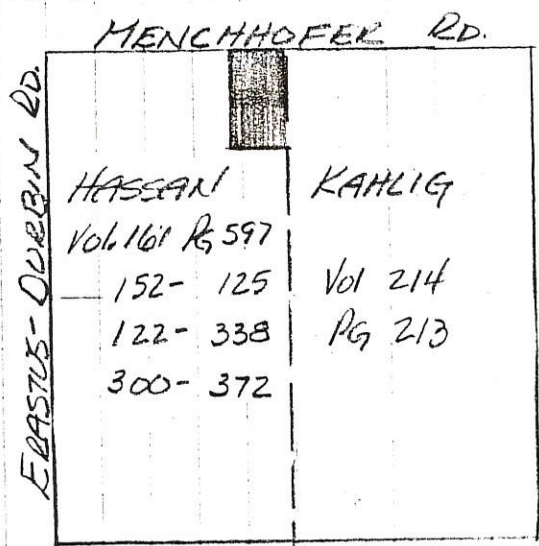 MENCHHOFER RD.
ERASTUS-DURBIN RD.
HASSAN
Vol. 161 Pg 597
152- 125
122- 338
300- 372
KAHLIG
Vol 214
PG 213